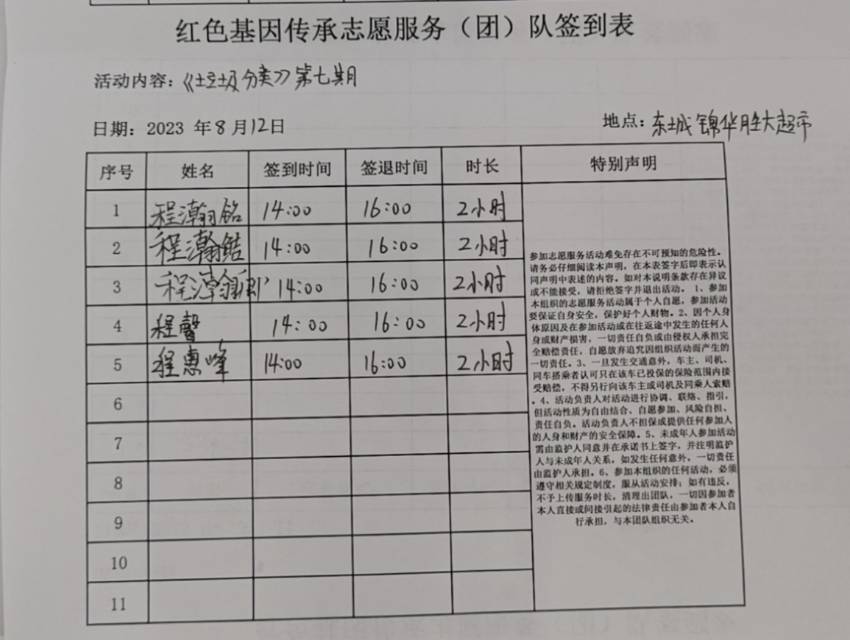 红色基因传承志愿服务（团）队签到表
活动内容：《垃圾分类》第七期
日期：2023 年8月12日 地点：东城锦华胜大超市
序号 姓名 签到时间 签退时间 时长 特别声明
1 程瀚铭 14:00 16:00 2小时
2 程瀚皓 14:00 16:00 2小时
3 程瀚 14:00 16:00 2小时
4 程馨 14:00 16:00 2小时
5 程惠峰 14:00 16:00 2小时
6
7
8
9
10
11
参加志愿服务活动难免存在不可预知的危险性。
请务必仔细阅读本声明，在本表签字后即表示认
同声明中表述的内容。如对本说明条款存在异议
或不能接受，请拒绝签字并退出活动。 1、参加
本组织的志愿服务活动属于个人自愿，参加活动
要保证自身安全，保护好个人财物。2、因个人身
体原因及在参加活动或在往返途中发生的任何人
身或财产损害，一切责任自负或由侵权人承担完
全赔偿责任，自愿放弃追究因组织活动而产生的
一切责任。3、一旦发生交通意外，车主、司机、
同车搭乘者认可只在该车已投保的保险范围内接
受赔偿，不得另行向该车主或司机及同乘人索赔
。4、活动负责人对活动进行协调、联络、指引，
但活动性质为自由结合、自愿参加、风险自担、
责任自负。活动负责人不担保或提供任何参加人
的人身和财产的安全保障。5、未成年人参加活动
需由监护人同意并在承诺书上签字，并注明监护
人与未成年人关系，如发生任何意外，一切责任
由监护人承担。6、参加本组织的任何活动，必须
遵守相关规定制度，服从活动安排；如有违反，
不予上传服务时长，清理出团队，一切因参加者
本人直接或间接引起的法律责任由参加者本人自
行承担，与本团队组织无关。